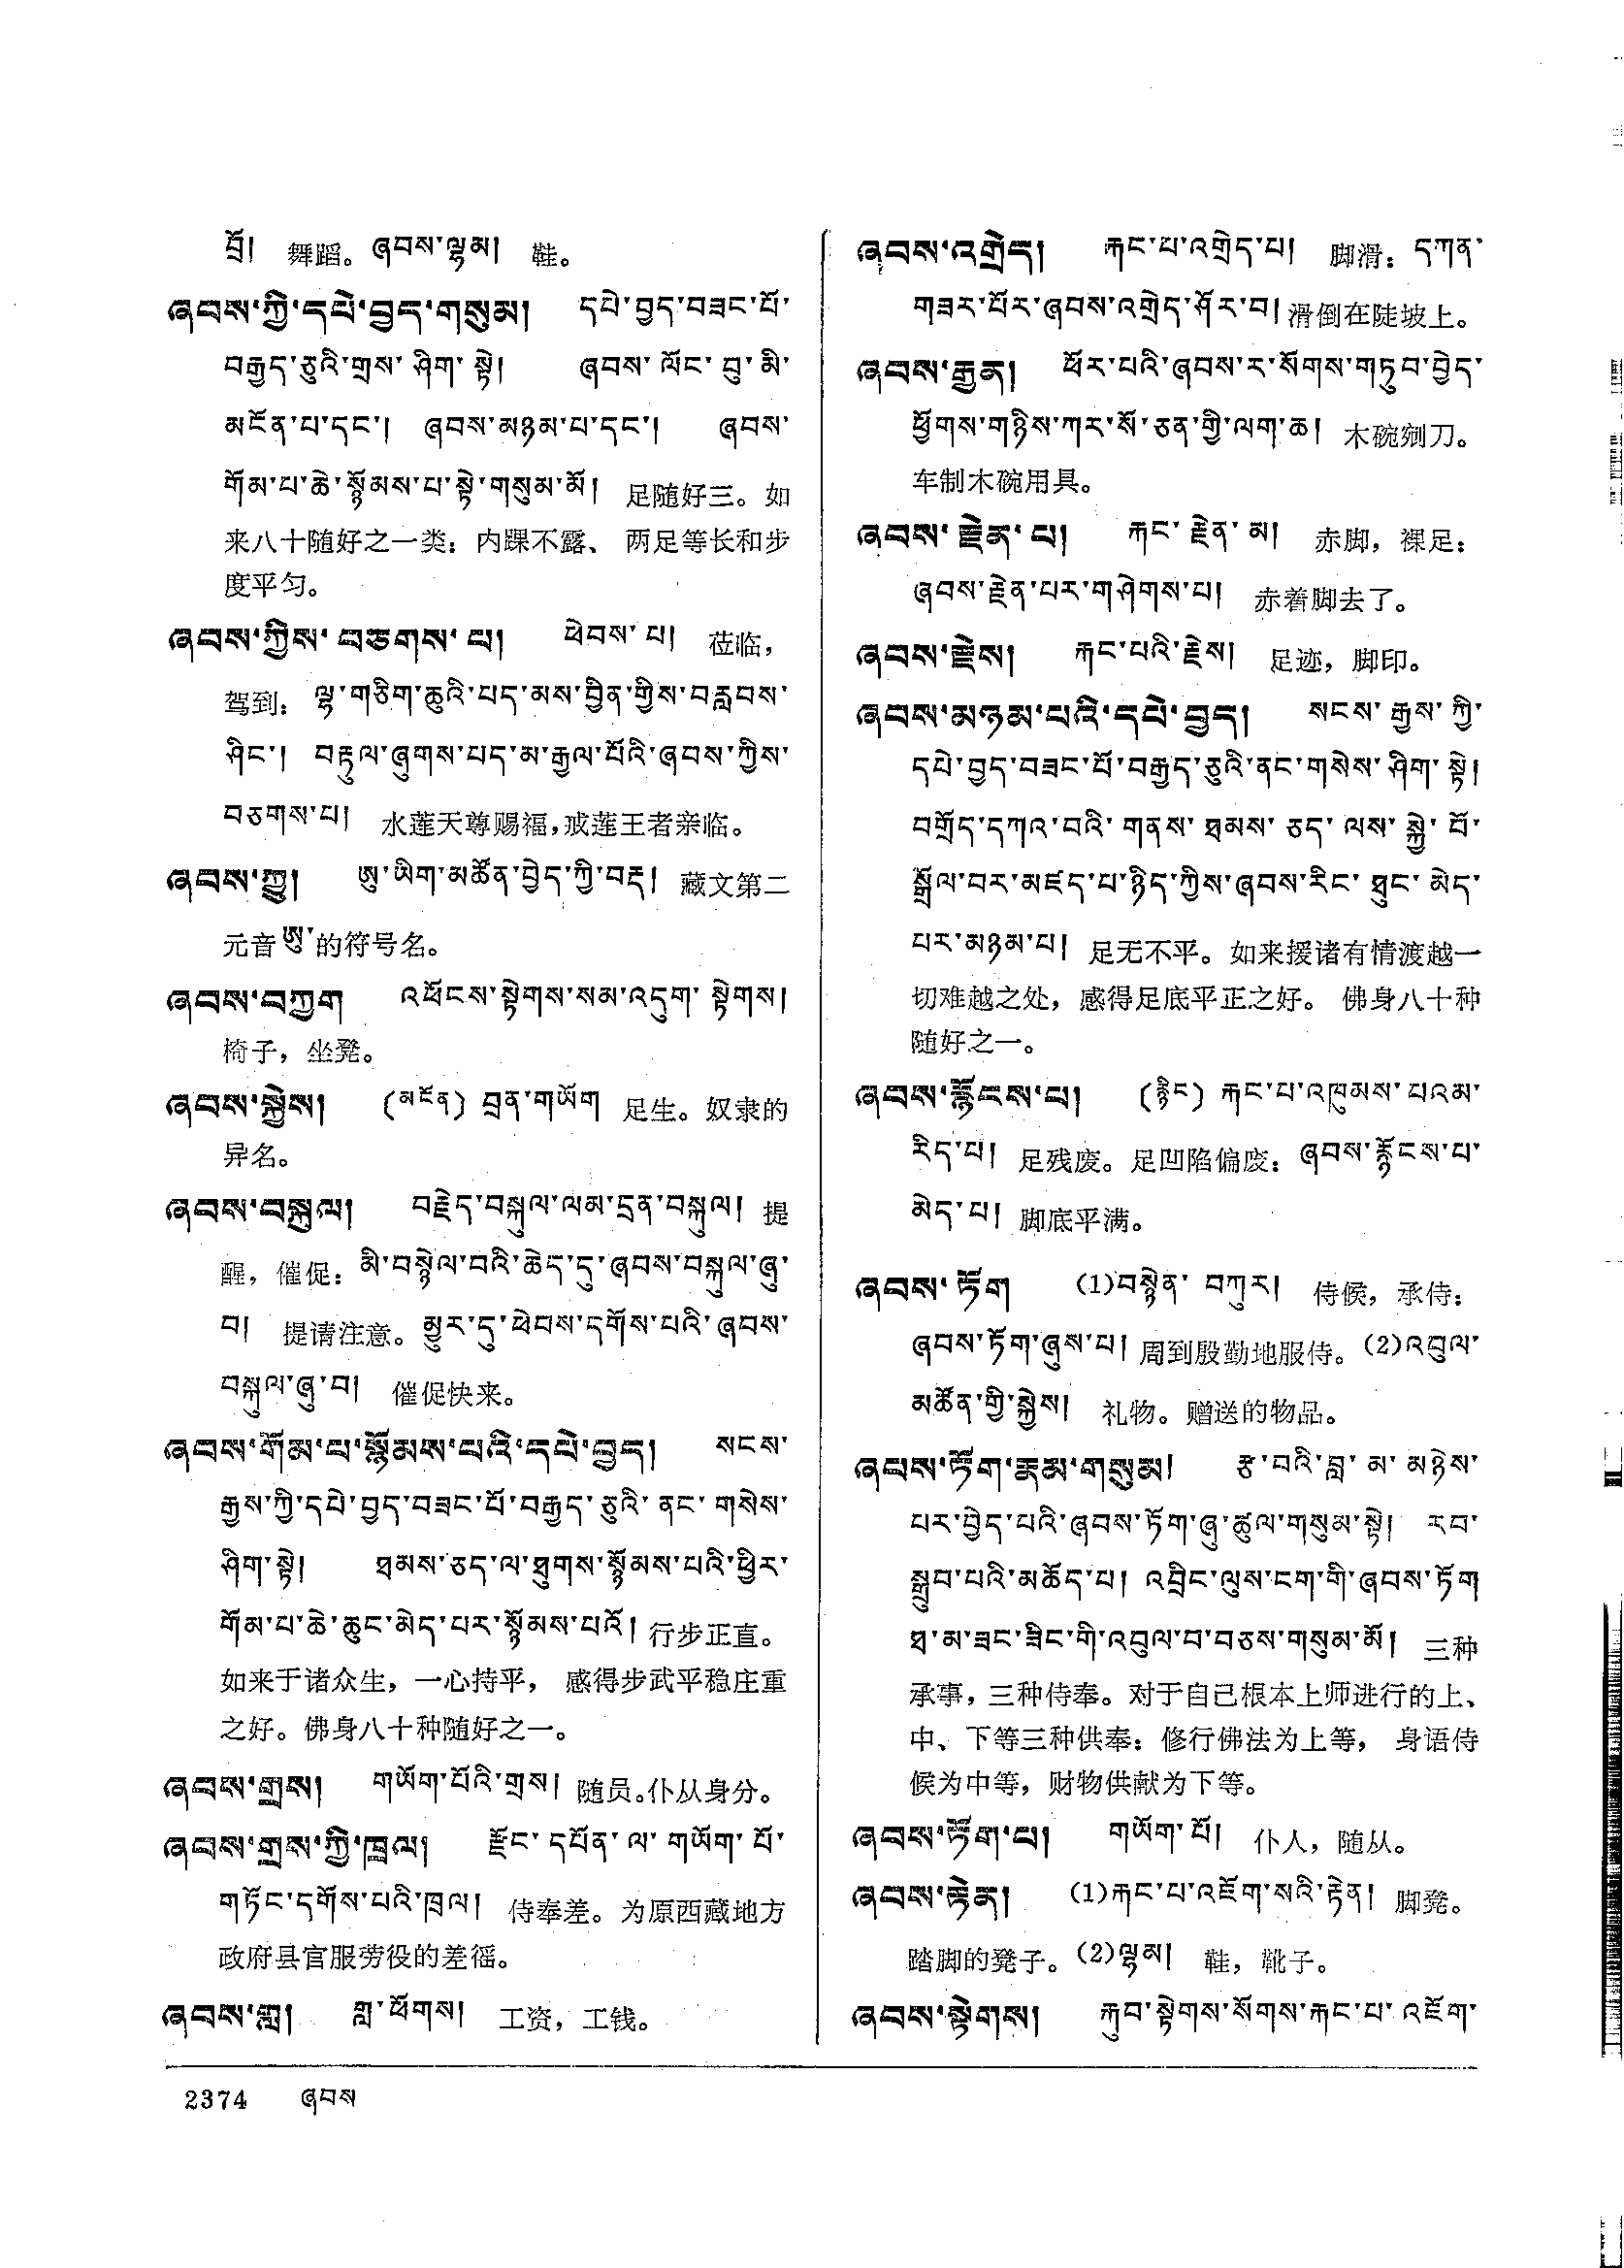 བྲོ། 舞蹈。ཞབས་ལྷམ། 鞋。
ཞབས་ཀྱི་དཔེ་བྱད་གསུམ། དཔེ་བྱད་བཟང་པོ་
བརྒྱད་ཅུའི་གྲས་ཤིག་སྟེ། ཞབས་ལོང་བུ་མི་
མངོན་པ་དང་། ཞབས་མཉམ་པ་དང་། ཞབས་
གོམ་པ་ཆེ་སྙོམས་པ་སྟེ་གསུམ་མོ། 足随好三。如
来八十随好之一类：内踝不露、两足等长和步
度平匀。
ཞབས་ཀྱིས་བཅགས་པ། ཕེབས་པ། 莅临，
驾到：ལྷ་གཅིག་ཆུའི་པད་མས་བྱིན་གྱིས་བརླབས་
ཤིང་། བརྟུལ་ཞུགས་པད་མ་རྒྱལ་པོའི་ཞབས་ཀྱིས་
བཅགས་པ། 水莲天尊赐福，戒莲王者亲临。
ཞབས་ཀྱུ། ཨུ་ཡིག་མཚོན་བྱེད་ཀྱི་བརྡ། 藏文第二
元音ཨུ་的符号名。
ཞབས་བཀྱག འཕོངས་སྟེགས་སམ་འདུག་སྟེགས།
椅子，坐凳。
ཞབས་སྐྱེས། (མངོན) བྲན་གཡོག 足生。奴隶的
异名。
ཞབས་བསྐུལ། བརྗེད་བསྐུལ་ལམ་དྲན་བསྐུལ། 提
醒，催促：མི་བསྙེལ་བའི་ཆེད་དུ་ཞབས་བསྐུལ་ཞུ་
བ། 提请注意。མྱུར་དུ་ཕེབས་དགོས་པའི་ཞབས་
བསྐུལ་ཞུ་བ། 催促快来。
ཞབས་གོམ་པ་སྙོམས་པའི་དཔེ་བྱད། སངས་
རྒྱས་ཀྱི་དཔེ་བྱད་བཟང་པོ་བརྒྱད་ཅུའི་ནང་གསེས་
ཤིག་སྟེ། ཐམས་ཅད་ལ་ཐུགས་སྙོམས་པའི་ཕྱིར་
གོམ་པ་ཆེ་ཆུང་མེད་པར་སྙོམས་པའོ། 行步正直。
如来于诸众生，一心持平，感得步武平稳庄重
之好。佛身八十种随好之一。
ཞབས་གྲས། གཡོག་པོའི་གྲས། 随员。仆从身分。
ཞབས་གྲས་ཀྱི་ཁྲལ། རྫོང་དཔོན་ལ་གཡོག་པོ་
གཏོང་དགོས་པའི་ཁྲལ། 侍奉差。为原西藏地方
政府县官服劳役的差徭。
ཞབས་གླ། གླ་ཕོགས། 工资，工钱。
ཞབས་འགྲེད། རྐང་པ་འགྲེད་པ། 脚滑：དཀན་
གཟར་པོར་ཞབས་འགྲེད་ཤོར་བ། 滑倒在陡坡上。
ཞབས་རྒྱན། ཕོར་པའི་ཞབས་ར་སོགས་གཏུབ་བྱེད་
ཕྱོགས་གཉིས་ཀར་སོ་ཅན་གྱི་ལག་ཆ། 木碗剜刀。
车制木碗用具。
ཞབས་རྗེན་པ། རྐང་རྗེན་མ། 赤脚，裸足：
ཞབས་རྗེན་པར་གཤེགས་པ། 赤着脚去了。
ཞབས་རྗེས། རྐང་པའི་རྗེས། 足迹，脚印。
ཞབས་མཉམ་པའི་དཔེ་བྱད། སངས་རྒྱས་ཀྱི་
དཔེ་བྱད་བཟང་པོ་བརྒྱད་ཅུའི་ནང་གསེས་ཤིག་སྟེ།
བགྲོད་དཀའ་བའི་གནས་ཐམས་ཅད་ལས་སྐྱེ་བོ་
སྒྲོལ་བར་མཛད་པ་ཉིད་ཀྱིས་ཞབས་རིང་ཐུང་མེད་
པར་མཉམ་པ། 足无不平。如来援诸有情渡越一
切难越之处，感得足底平正之好。佛身八十种
随好之一。
ཞབས་རྙོངས་པ། (རྙིང) རྐང་པ་འཁུམས་པའམ་
རིད་པ། 足残废。足凹陷偏废：ཞབས་རྙོངས་པ་
མེད་པ། 脚底平满。
ཞབས་ཏོག (1)བསྙེན་བཀུར། 侍候，承侍：
ཞབས་ཏོག་ཞུས་པ། 周到殷勤地服侍。(2)འབུལ་
མཚོན་གྱི་སྐྱེས། 礼物。赠送的物品。
ཞབས་ཏོག་རྣམ་གསུམ། རྩ་བའི་བླ་མ་མཉེས་
པར་བྱེད་པའི་ཞབས་ཏོག་ཞུ་ཚུལ་གསུམ་སྟེ། རབ་
སྒྲུབ་པའི་མཆོད་པ། འབྲིང་ལུས་ངག་གི་ཞབས་ཏོག
ཐ་མ་ཟང་ཟིང་གི་འབུལ་བ་བཅས་གསུམ་མོ། 三种
承事，三种侍奉。对于自己根本上师进行的上、
中、下等三种供奉：修行佛法为上等，身语侍
候为中等，财物供献为下等。
ཞབས་ཏོག་པ། གཡོག་པོ། 仆人，随从。
ཞབས་རྟེན། (1)རྐང་པ་འཇོག་སའི་རྟེན། 脚凳。
踏脚的凳子。(2)ལྷམ། 鞋，靴子。
ཞབས་སྟེགས། རྐུབ་སྟེགས་སོགས་རྐང་པ་འཇོག་
2374 ཞབས